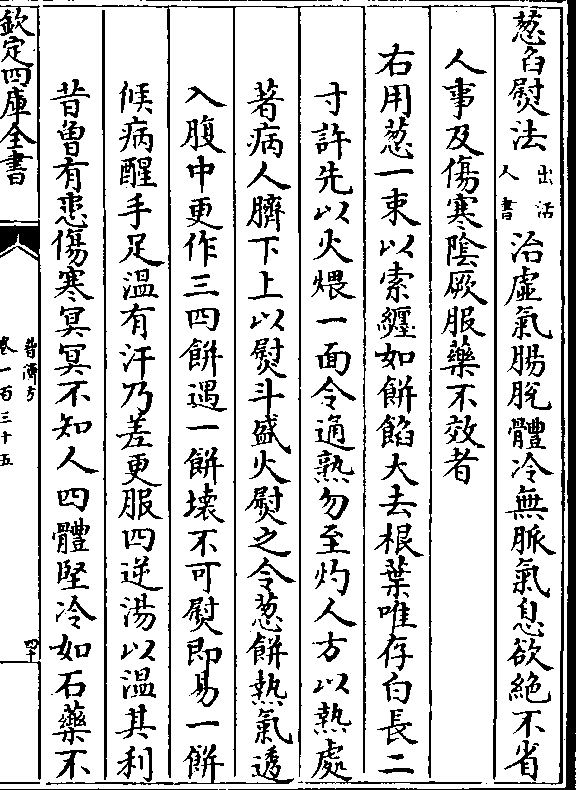 葱白熨法出活人書治虛氣腸脫體冷無脈氣息欲絶不省
人事及傷寒陰厥服藥不效者
右用葱一束以索纏如餅餡大去根葉唯存白長二
寸許先以火煨一面令通熟勿至灼人方以熟處
著病人臍下上以熨斗盛火熨之令葱餅熱氣透
入腹中更作三四餅遇一餅壊不可熨即易一餅
候病醒手足温有汗乃差更服四逆湯以温其利
昔曽有患傷寒冥冥不知人四體堅冷如石藥不
欽定四庫全書
普濟方
卷一百三十五
四十